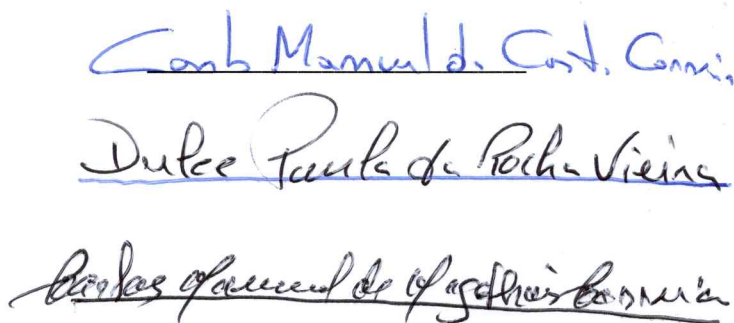 Carlos Manuel da Costa Correia
Dulce Paula da Rocha Vieira
Carlos Manuel de Magalhães Correia